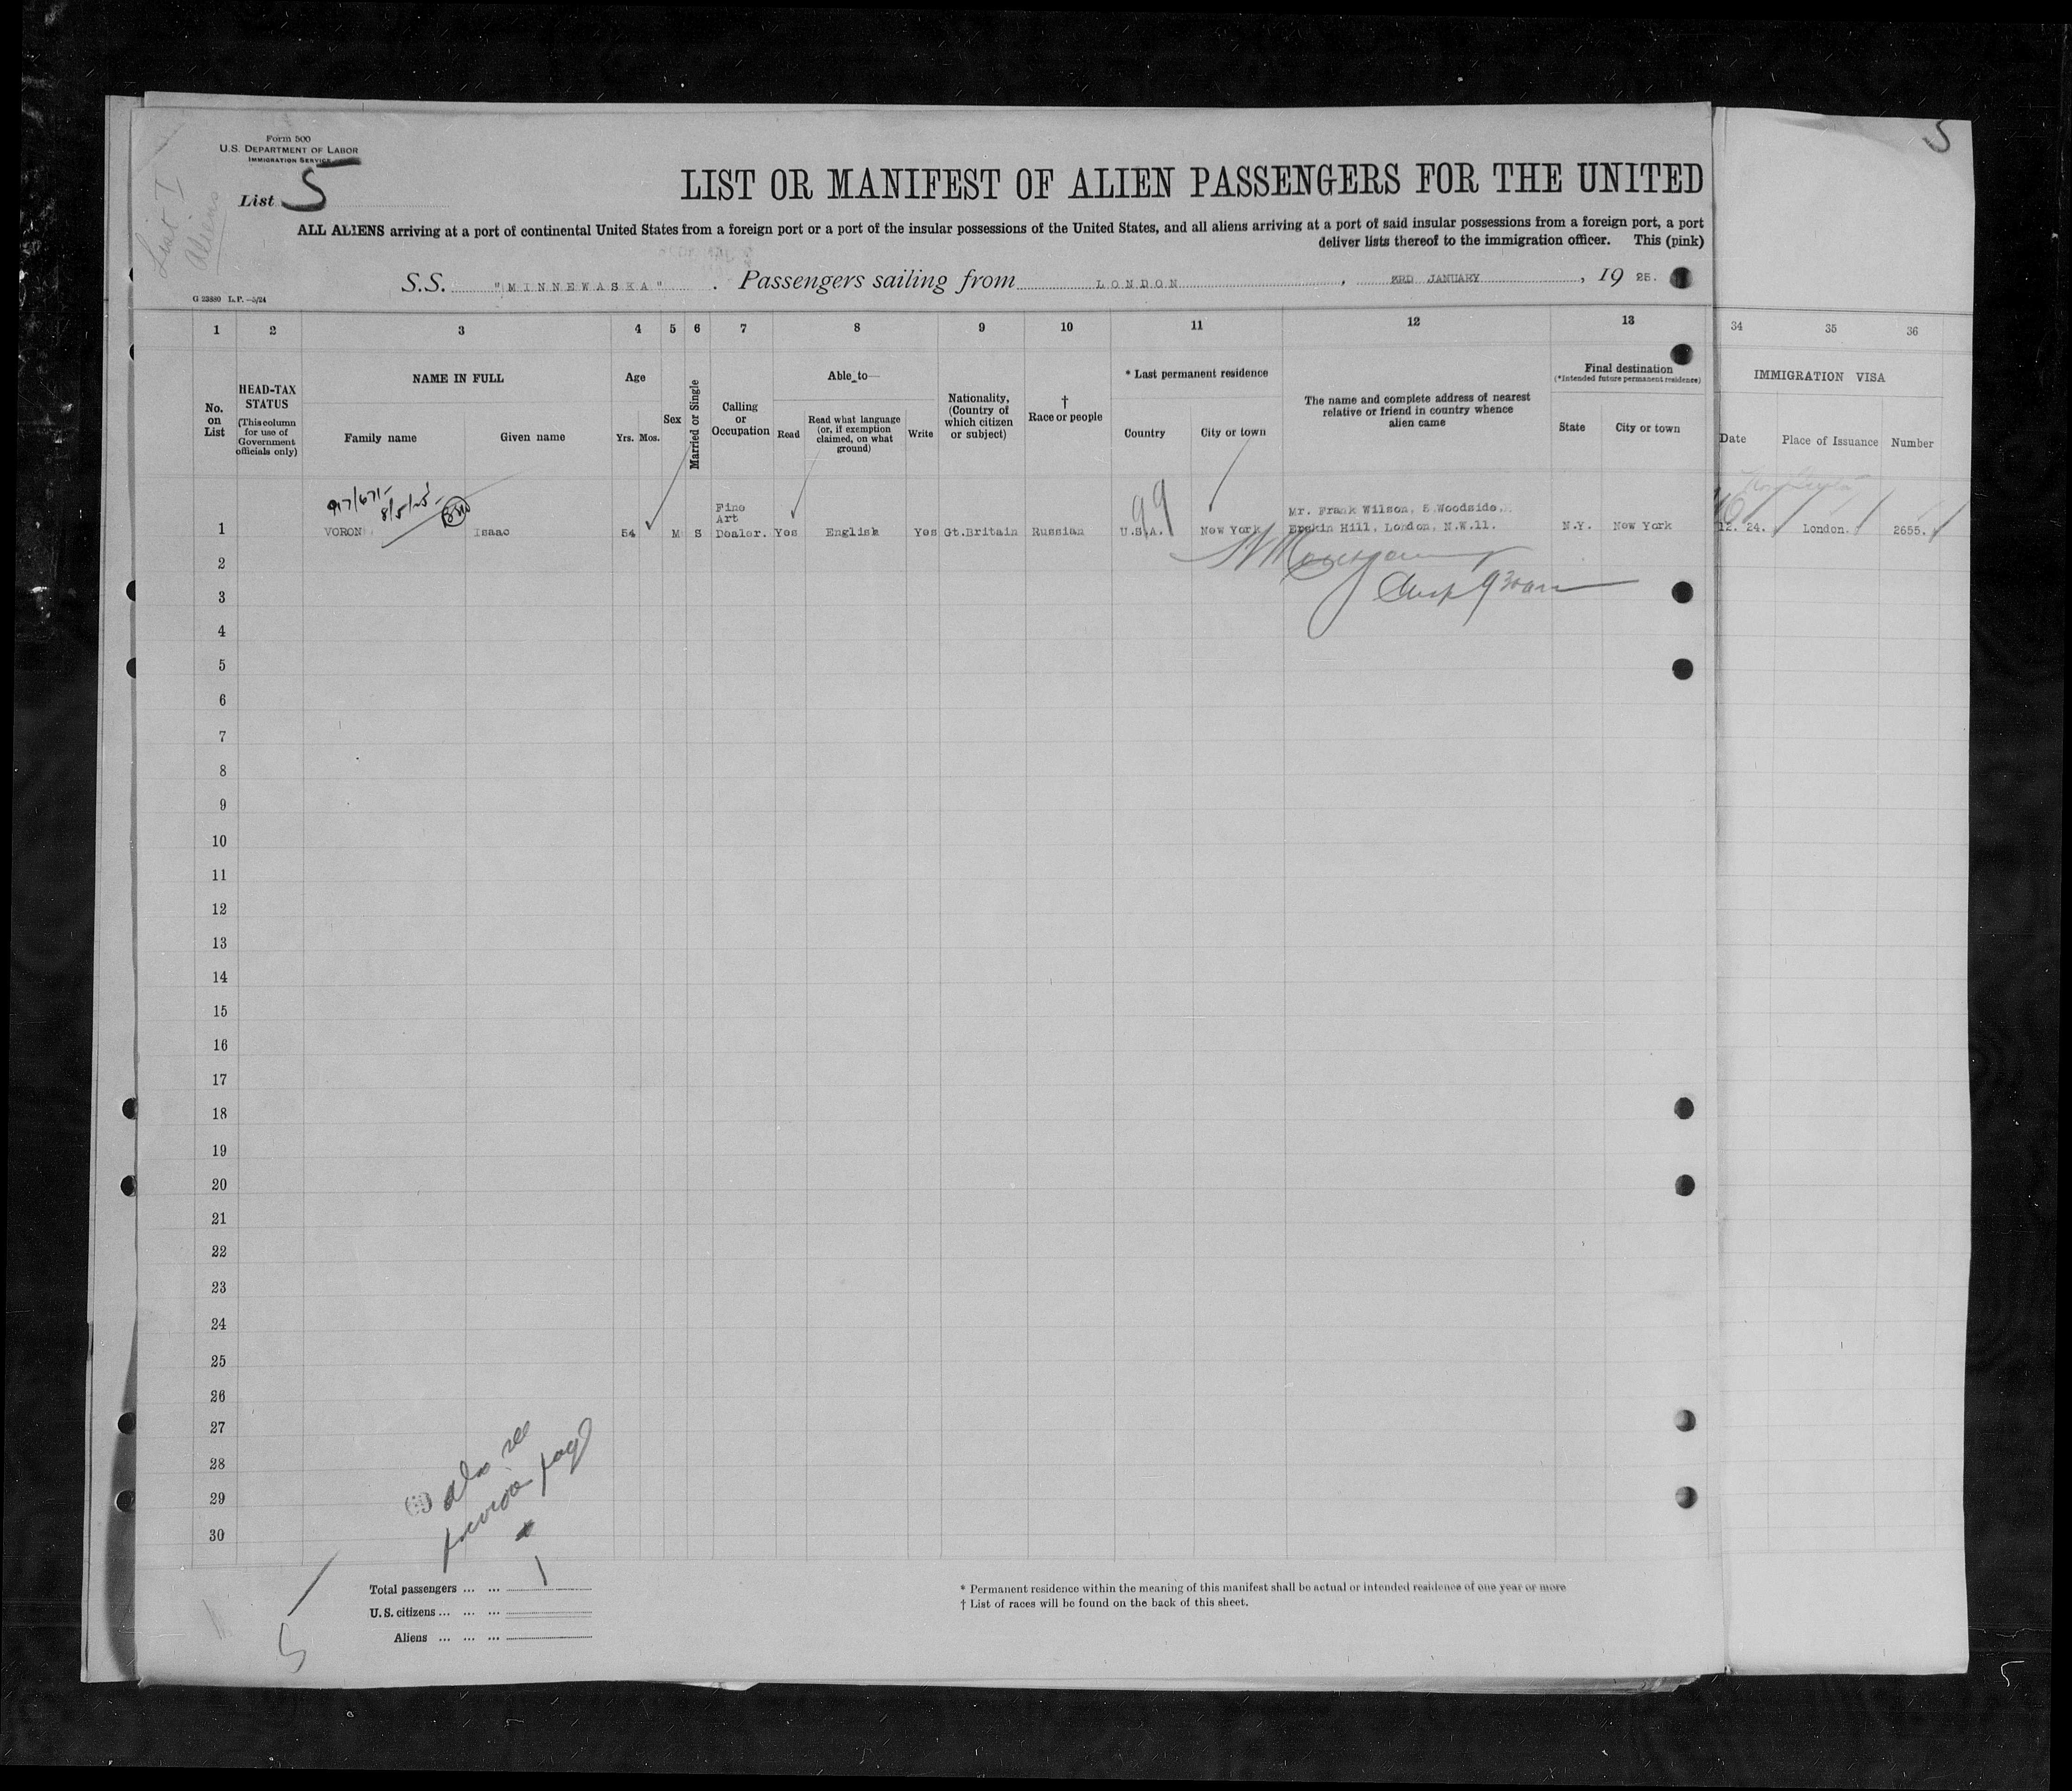 Form 500
U.S. DEPARTMENT OF LABOR
IMMIGRATION SERVICE
List 5
List I
Aliens
5
LIST OR MANIFEST OF ALIEN PASSENGERS FOR THE UNITED
ALL ALIENS arriving at a port of continental United States from a foreign port or a port of the insular possessions of the United States, and all aliens arriving at a port of said insular possessions from a foreign port, a port
deliver lists thereof to the immigration officer. This (pink)
S.S. "MINNEWASKA". Passengers sailing from LONDON, 3RD JANUARY, 19 25.
G 23880 L.P.—5/24
1 2 3 4 5 6 7 8 9 10 11 12 13 34 35 36
No. on List
HEAD-TAX STATUS
(This column for use of Government officials only)
NAME IN FULL
Family name
Given name
Age
Yrs. Mos.
Sex
Married or Single
Calling or Occupation
Able to—
Read
Read what language (or, if exemption claimed, on what ground)
Write
Nationality, (Country of which citizen or subject)
† Race or people
* Last permanent residence
Country
City or town
The name and complete address of nearest relative or friend in country whence alien came
Final destination
(*Intended future permanent residence)
State
City or town
IMMIGRATION VISA
Date
Place of Issuance
Number
1 VORON Isaac 54 M S Fine Art Dealer. Yes English Yes Gt.Britain Russian U.S.A. New York Mr. Frank Wilson, 5 Woodside, Erskin Hill, London, N.W.11. N.Y. New York 12. 24. London. 2655.
99
16
2
3
4
5
6
7
8
9
10
11
12
13
14
15
16
17
18
19
20
21
22
23
24
25
26
27
28
29
30
also see
previous page
Total passengers ... ... 1
U.S. citizens ... ... ...
Aliens ... ... ...
* Permanent residence within the meaning of this manifest shall be actual or intended residence of one year or more
† List of races will be found on the back of this sheet.
5
5